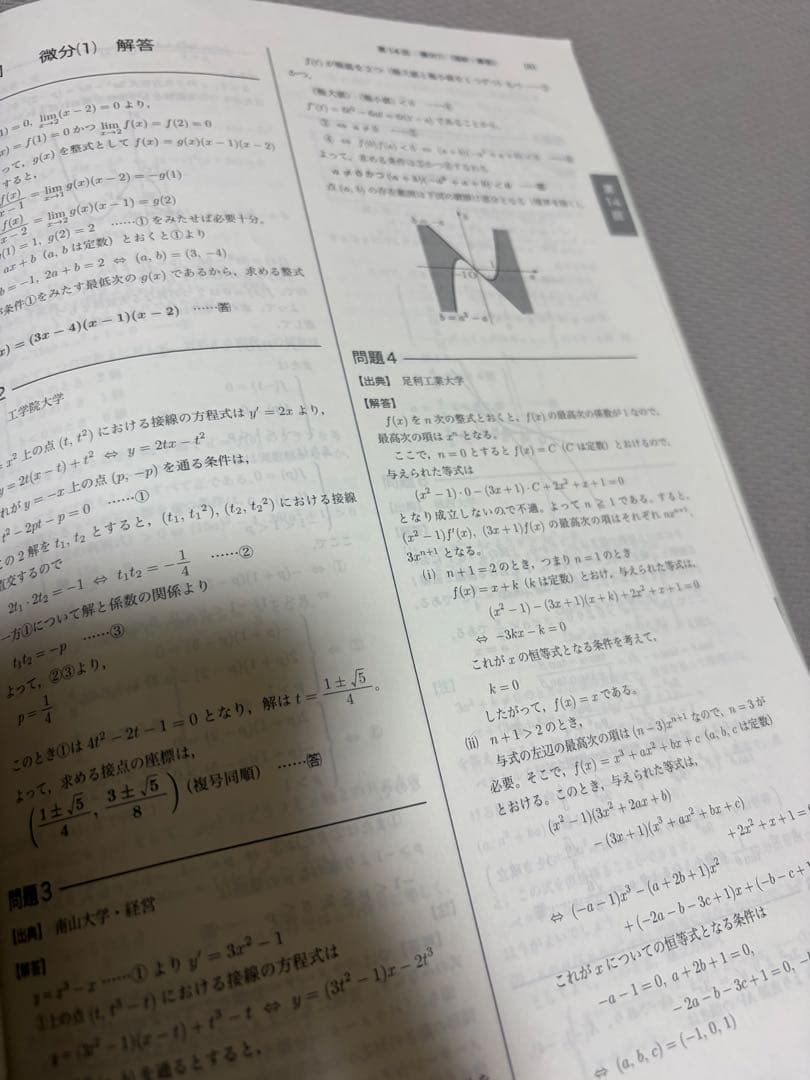 微分(1) 解答
1) = 0, lim_{x→2}(x−2) = 0 より,
x) = f(1) = 0 かつ lim_{x→2} f(x) = f(2) = 0
って, g(x) を整式として f(x) = g(x)(x−1)(x−2)
すると,
f(x)/x−1 = lim_{x→1} g(x)(x−2) = −g(1)
f(x)/x−2 = lim_{x→2} g(x)(x−1) = g(2)
(1) = 1, g(2) = 2 ……① をみたせば必要十分。
ax + b (a, b は定数) とおくと①より
b = −1, 2a + b = 2 ⇔ (a, b) = (3, −4)
条件①をみたす最低次の g(x) であるから、求める整式
x) = (3x−4)(x−1)(x−2) ……答
2
工学院大学
= x² 上の点 (t, t²) における接線の方程式は y′ = 2x より,
y = 2t(x−t) + t² ⇔ y = 2tx − t²
れが y = −x 上の点 (p, −p) を通る条件は,
t² − 2pt − p = 0 ……①
この2解を t₁, t₂ とすると, (t₁, t₁²), (t₂, t₂²) における接線
直交するので
2t₁·2t₂ = −1 ⇔ t₁t₂ = −1/4 ……②
一方①について解と係数の関係より
t₁t₂ = −p ……③
よって, ②③より,
p = 1/4
このとき①は 4t² − 2t − 1 = 0 となり, 解は t = (1±√5)/4 。
よって, 求める接点の座標は,
((1±√5)/4, (3±√5)/8) (複号同順) ……答
問題3
【出典】 南山大学・経営
【解答】
y = x³ − x ……① より y′ = 3x² − 1
①上の点 (t, t³ − t) における接線の方程式は
y = (3t² − 1)(x − t) + t³ − t ⇔ y = (3t² − 1)x − 2t³
を通るとすると,
第14回
かつ,
よって, 求める条件は
b = −a
−1 O 1
b = a³ − a
問題4
【出典】 足利工業大学
【解答】
f(x) を n 次の整式とおくと, f(x) の最高次の係数が1なので,
最高次の項は xⁿ となる。
ここで, n = 0 とすると f(x) = C (C は定数) とおけるので,
与えられた等式は
(x² − 1)·0 − (3x + 1)·C + 2x² + x + 1 = 0
となり成立しないので不適。よって n ≧ 1 である。すると,
(x² − 1)f′(x), (3x + 1)f(x) の最高次の項はそれぞれ nxⁿ⁺¹,
3xⁿ⁺¹ となる。
(i) n + 1 = 2 のとき, つまり n = 1 のとき
f(x) = x + k (k は定数) とおけ, 与えられた等式は,
(x² − 1) − (3x + 1)(x + k) + 2x² + x + 1 = 0
⇔ −3kx − k = 0
これが x の恒等式となる条件を考えて,
k = 0
したがって, f(x) = x である。
(ii) n + 1 > 2 のとき,
与式の左辺の最高次の項は (n − 3)xⁿ⁺¹ なので, n = 3 が
必要。そこで, f(x) = x³ + ax² + bx + c (a, b, c は定数)
とおける。このとき, 与えられた等式は,
(x² − 1)(3x² + 2ax + b)
− (3x + 1)(x³ + ax² + bx + c)
+ 2x² + x + 1 =
⇔ (−a − 1)x³ − (a + 2b + 1)x²
+ (−2a − b − 3c + 1)x + (−b − c + 1
これが x についての恒等式となる条件は
−a − 1 = 0, a + 2b + 1 = 0,
−2a − b − 3c + 1 = 0, −b
⇔ (a, b, c) = (−1, 0, 1)